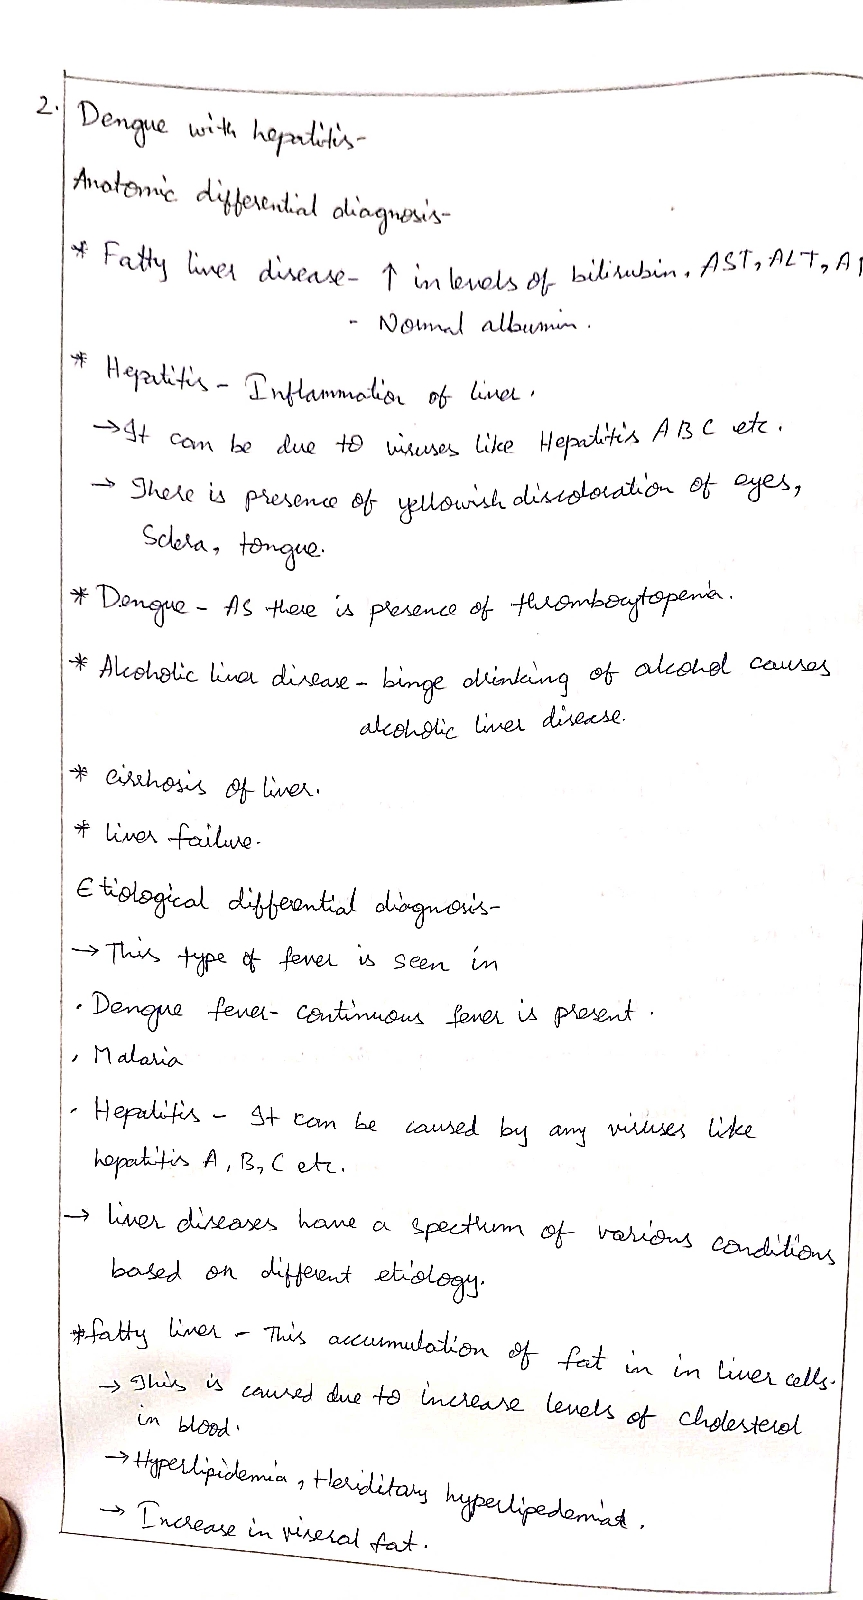 2. Dengue with hepatitis-
Anatomic differential diagnosis-
* Fatty liver disease - ↑ in levels of bilirubin, AST, ALT, A
- Normal albumin.
* Hepatitis - Inflammation of liver.
→ It can be due to viruses like Hepatitis A B C etc.
→ There is presence of yellowish discoloration of eyes,
Sclera, tongue.
* Dengue - As there is presence of thrombocytopenia.
* Alcoholic liver disease - binge drinking of alcohol causes
alcoholic liver disease.
* cirrhosis of liver.
* liver failure.
Etiological differential diagnosis-
→ This type of fever is seen in
• Dengue fever - continuous fever is present.
• Malaria
• Hepatitis - It can be caused by any viruses like
hepatitis A, B, C etc.
→ liver diseases have a spectrum of various conditions
based on different etiology.
* fatty liver - This accumulation of fat in in liver cells.
→ This is caused due to increase levels of cholesterol
in blood.
→ Hyperlipidemia, Heriditary hyperlipedemia.
→ Increase in viseral fat.